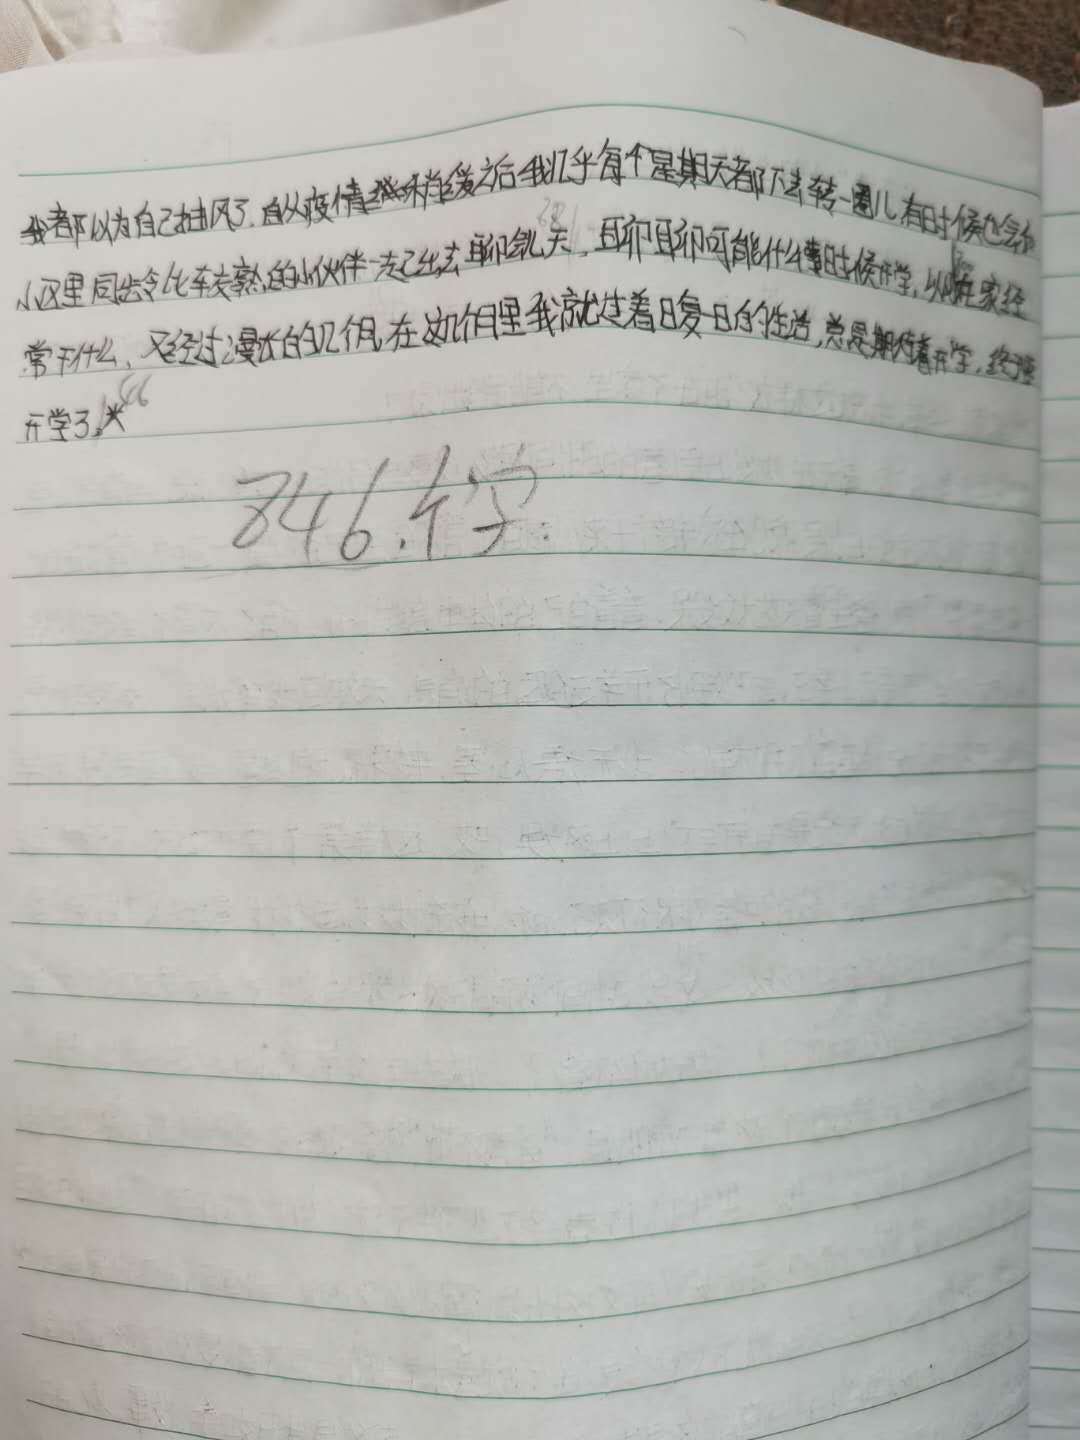 我都以为自己抽风了.自从疫情稍缓之后我几乎每个星期天都下去转一圈儿.有时候也会和
小区里同龄比较熟的小伙伴一起出去聊会儿天,聊聊可能什么时候开学,以及在家经
常干什么、又经过漫长的几个月,在这几个月里我就过着日复一日的生活,总是期待着开学,终于
开学了。
846.个字